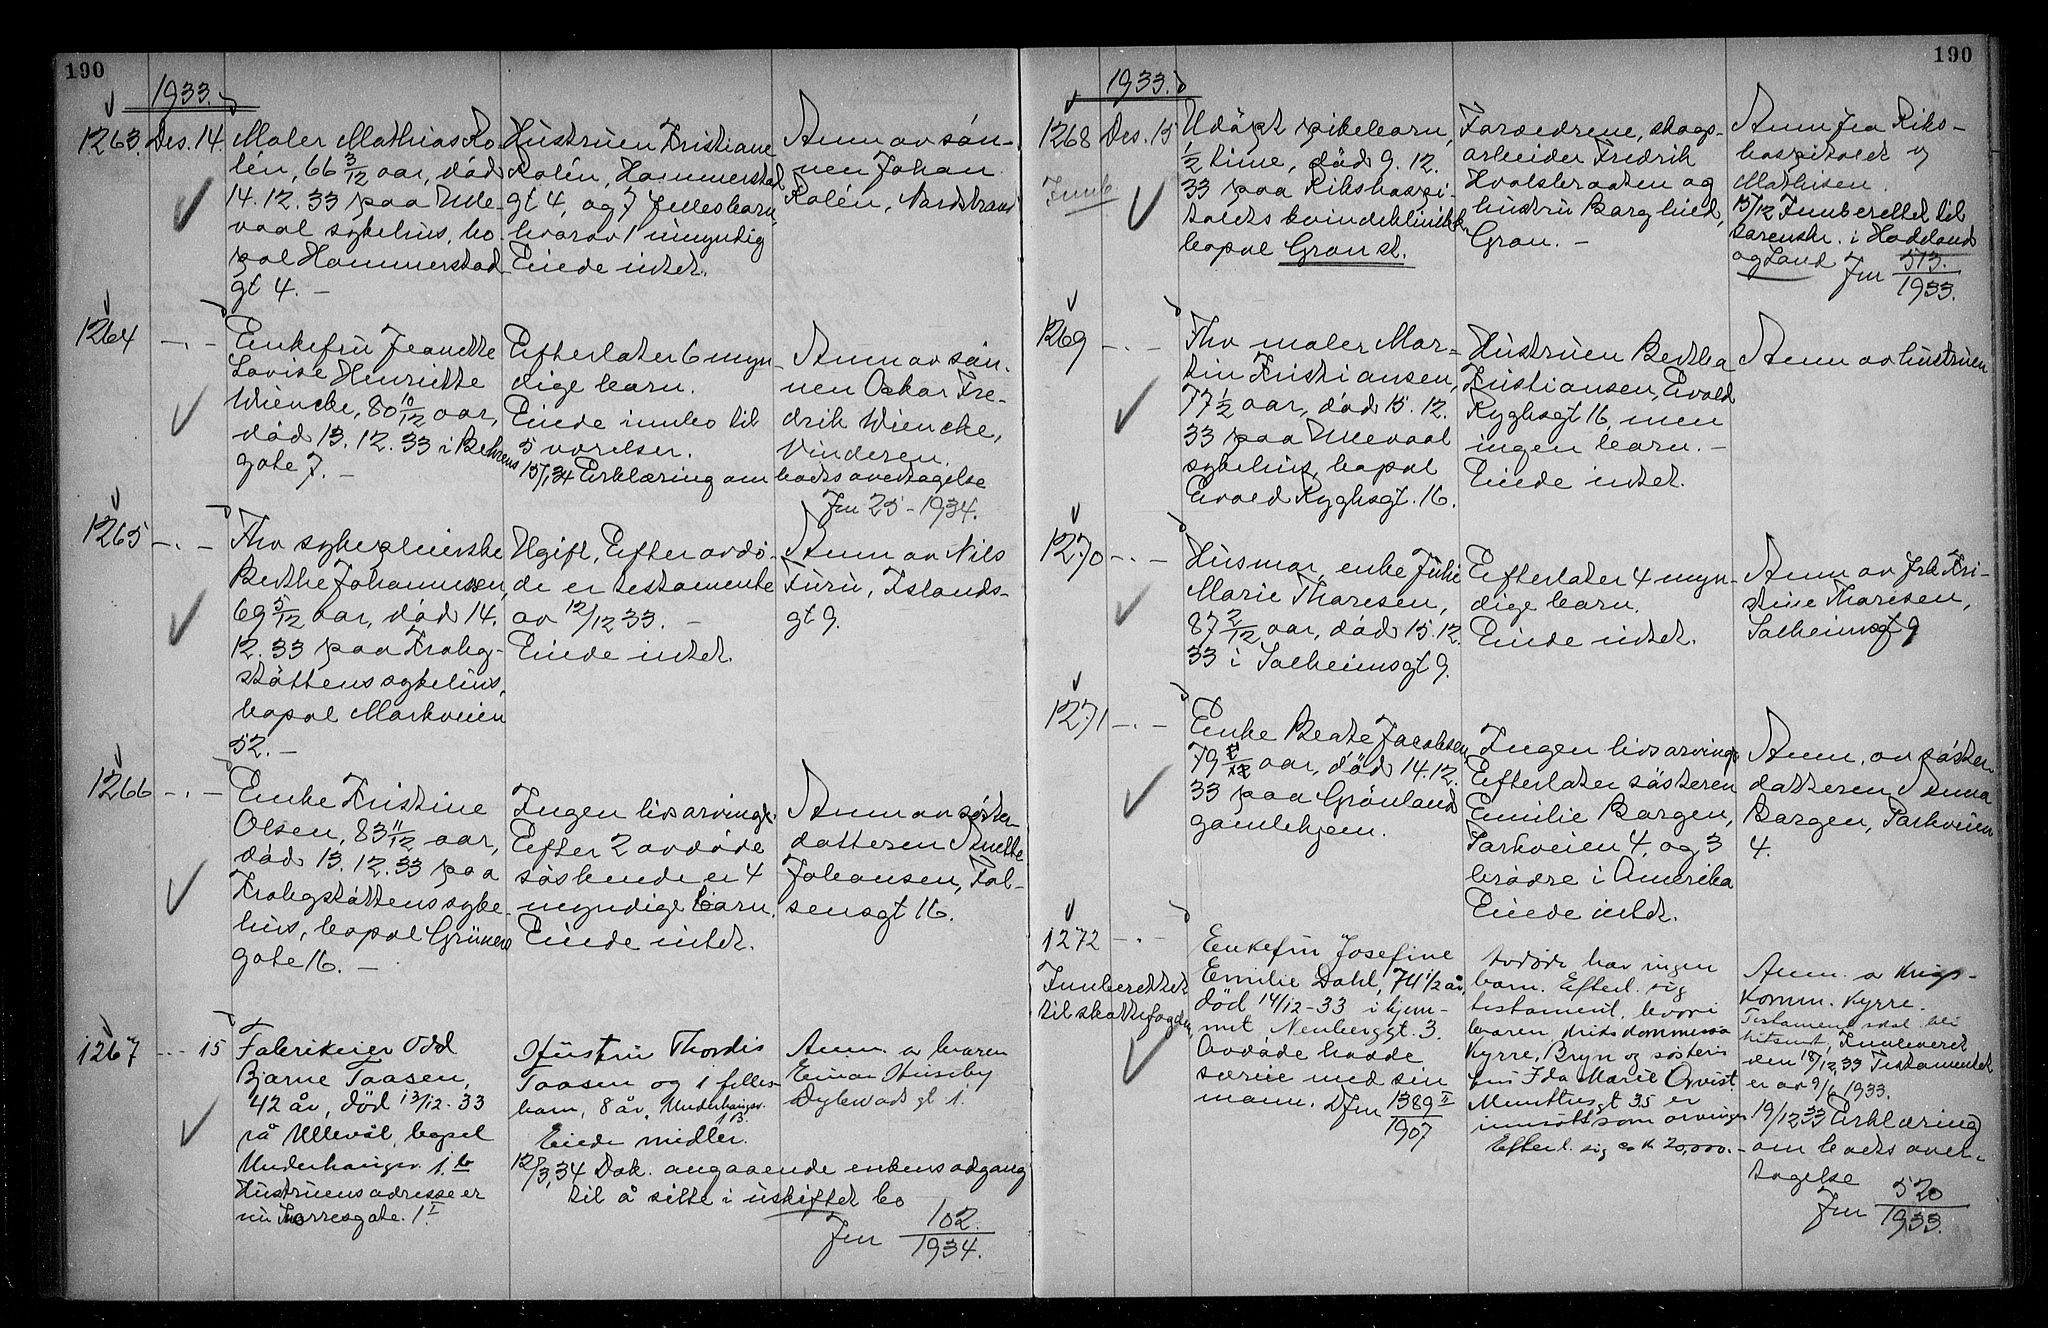 190
1933.
1263. Des. 14. Maler Mathias Ro-
lén, 66 3/12 aar, död
14. 12. 33 paa Ulle-
vaal sykehus, bo-
pæl Hammerstad
gt 4. —
Hustruen Kristiane
Rolén, Hammerstad
gt 4, og 7 fellesbarn,
hvorav 1 umyndig
Eiede intet.
Anm av søn-
nen Johan
Rolén, Nordstrand
1264 —.— Enkefru Jeanette
Lovise Henriette
Wiencke, 80 10/12 aar,
död 13. 12. 33 i Behrens
gate 7. —
Efterlater 6 myn-
dige barn.
Eiede innbo til
5 værelser.
15/1 34 Erklæring om
Anm av søn-
nen Oskar Fre-
drik Wiencke,
Vinderen.
boets overtagelse
Jnr 25 - 1934.
1265 —.— Fhv sykepleierske
Berthe Johannessen,
69 5/12 aar, död 14.
12. 33 paa Krohg-
støttens sykehus,
bopæl Markveien
52. —
Ugift, Efter avdø-
de er testamente
av 12/12 33. —
Eiede intet.
Anm av Nils
Furu, Islands-
gt 9.
1266 —.— Enke Kristine
Olsen, 83 11/12 aar,
död 13. 12. 33 paa
Krohgstøttens syke-
hus, bopæl Grüners
gate 16. —
Ingen livsarving.
Efter 2 avdøde
søskende er 4
myndige barn.
Eiede intet.
Anm av søster-
datteren Anette
Johansen, Fal-
sensgt 16.
1267 —.— 15 Fabrikeier Odd
Bjarne Taasen,
42 år, död 13/12-33
på Ullevål, bopæl
Underhaugsv. 1. b
Hustruens adresse er
nu gate. 1 I
Hustru Thordis
Taasen og 1 felles-
barn, 8 år, Underhaugsv.
1 B.
Eiede midler.
12/3 34 Dok. angaaende enkens adgang
til å sitte i uskiftet bo
Anm. av broren
Einar Huseby
gt 1.
Jnr 102
1934.
190
1933.
1268 Des. 15
Innb
Udöpt pikebarn,
1/2 time, död 9. 12.
33 paa Rikshospi-
talets kvindeklinikk
bopæl Gran st.
Foreldrene, skogs-
arbeider Fredrik
Hvalsbraaten og
hustru Borghild,
Gran. —
Anm fra Riks-
hospitalet v
Mathisen.
15/12 Innberettet til
sorenskr. i Hadeland
og Land Jnr 513.
1933.
1269 —.— Fhv maler Mar-
tin Kristiansen,
77 1/2 aar, död 15. 12.
33 paa Ullevaal
sykehus, bopæl
Evald Ryghsgt. 16.
Hustruen Bertha
Kristiansen, Evald
Ryghsgt 16, men
ingen barn. —
Eiede intet.
Anm av hustruen
1270 —.— Husmor, enke Julie
Marie Thoresen,
87 2/12 aar, död 15. 12.
33 i Solheimsgt 9.
Efterlater 4 myn-
dige barn.
Eiede intet.
Anm av frk Kri-
stine Thoresen,
Solheimsgt 9
1271 —.— Enke Beate Jacobsen,
79 aar, död 14. 12.
33 paa Grönland
gamlehjem.
Ingen livsarving.
Efterlater søsteren
Emilie Borgen,
Parkveien 4, og 3
brødre i Amerika
Eiede intet.
Anm. av søster-
datteren Anna
Borgen, Parkveien
4.
1272 —.—
Innberettet
til skattefogden
Enkefru Josefine
Emilie Dahl, 74 1/2 år,
död 14/12-33 i hjem-
met Neuberggt. 3.
Avdøde hadde
særeie med sin
mann. Dfnr 1389 II
1907
Avdøde har ingen
barn. Efterl. sig
testament, hvori
broren, krigskommissær
Kyrre, Bryn og søsteren
fru Ida Marie Qvist
Munthesgt 35 er
innsatt som arvinger
Efterl. sig ca k 20,000.-
Anm. av Krigs-
komm. Kyrre.
Testament skal bli
hitsendt, Innleveret
den 18/12 33 Testamentet
er av 9/6 1933.
19/12 33 Erklæring
om boets over-
tagelse
Jnr 520
1933.